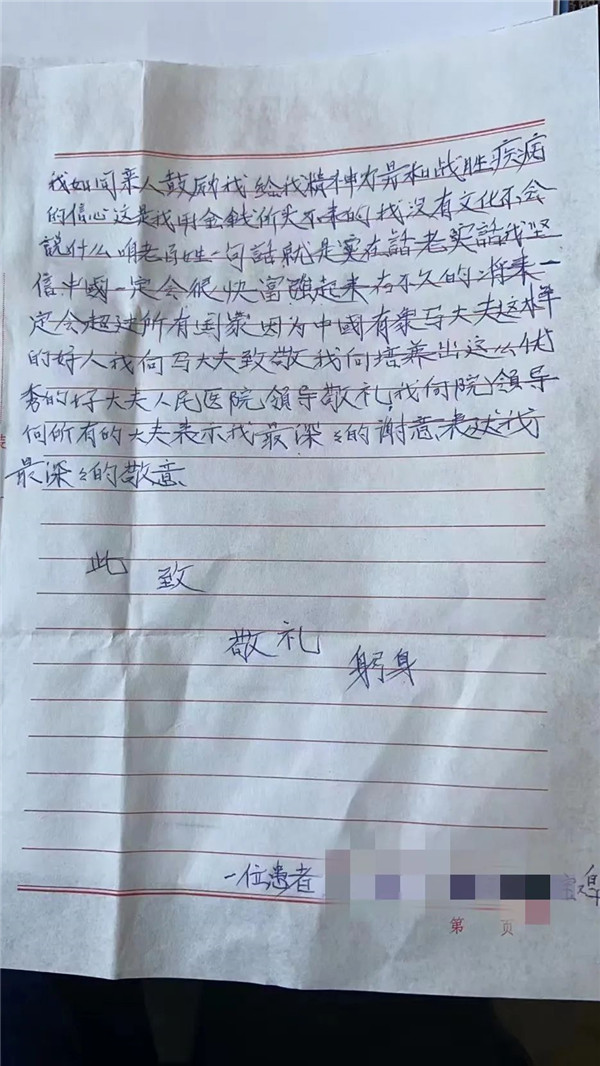 我如同亲人鼓励我给我精神力量和战胜疾病
的信心这是我用金钱所买不来的我没有文化不会
说什么咱老百姓一句話就是实在話老实話我坚
信中國一定会很快富強起来在不久的将来一
定会超过所有国家因为中國有象马大夫这样
的好人我向马大夫致敬我向培养出这么优
秀的好大夫人民医院领导敬礼我向院领导
向所有的大夫表示我最深々的谢意表达我
最深々的敬意
此致
敬礼
躬身
一位患者
第 页